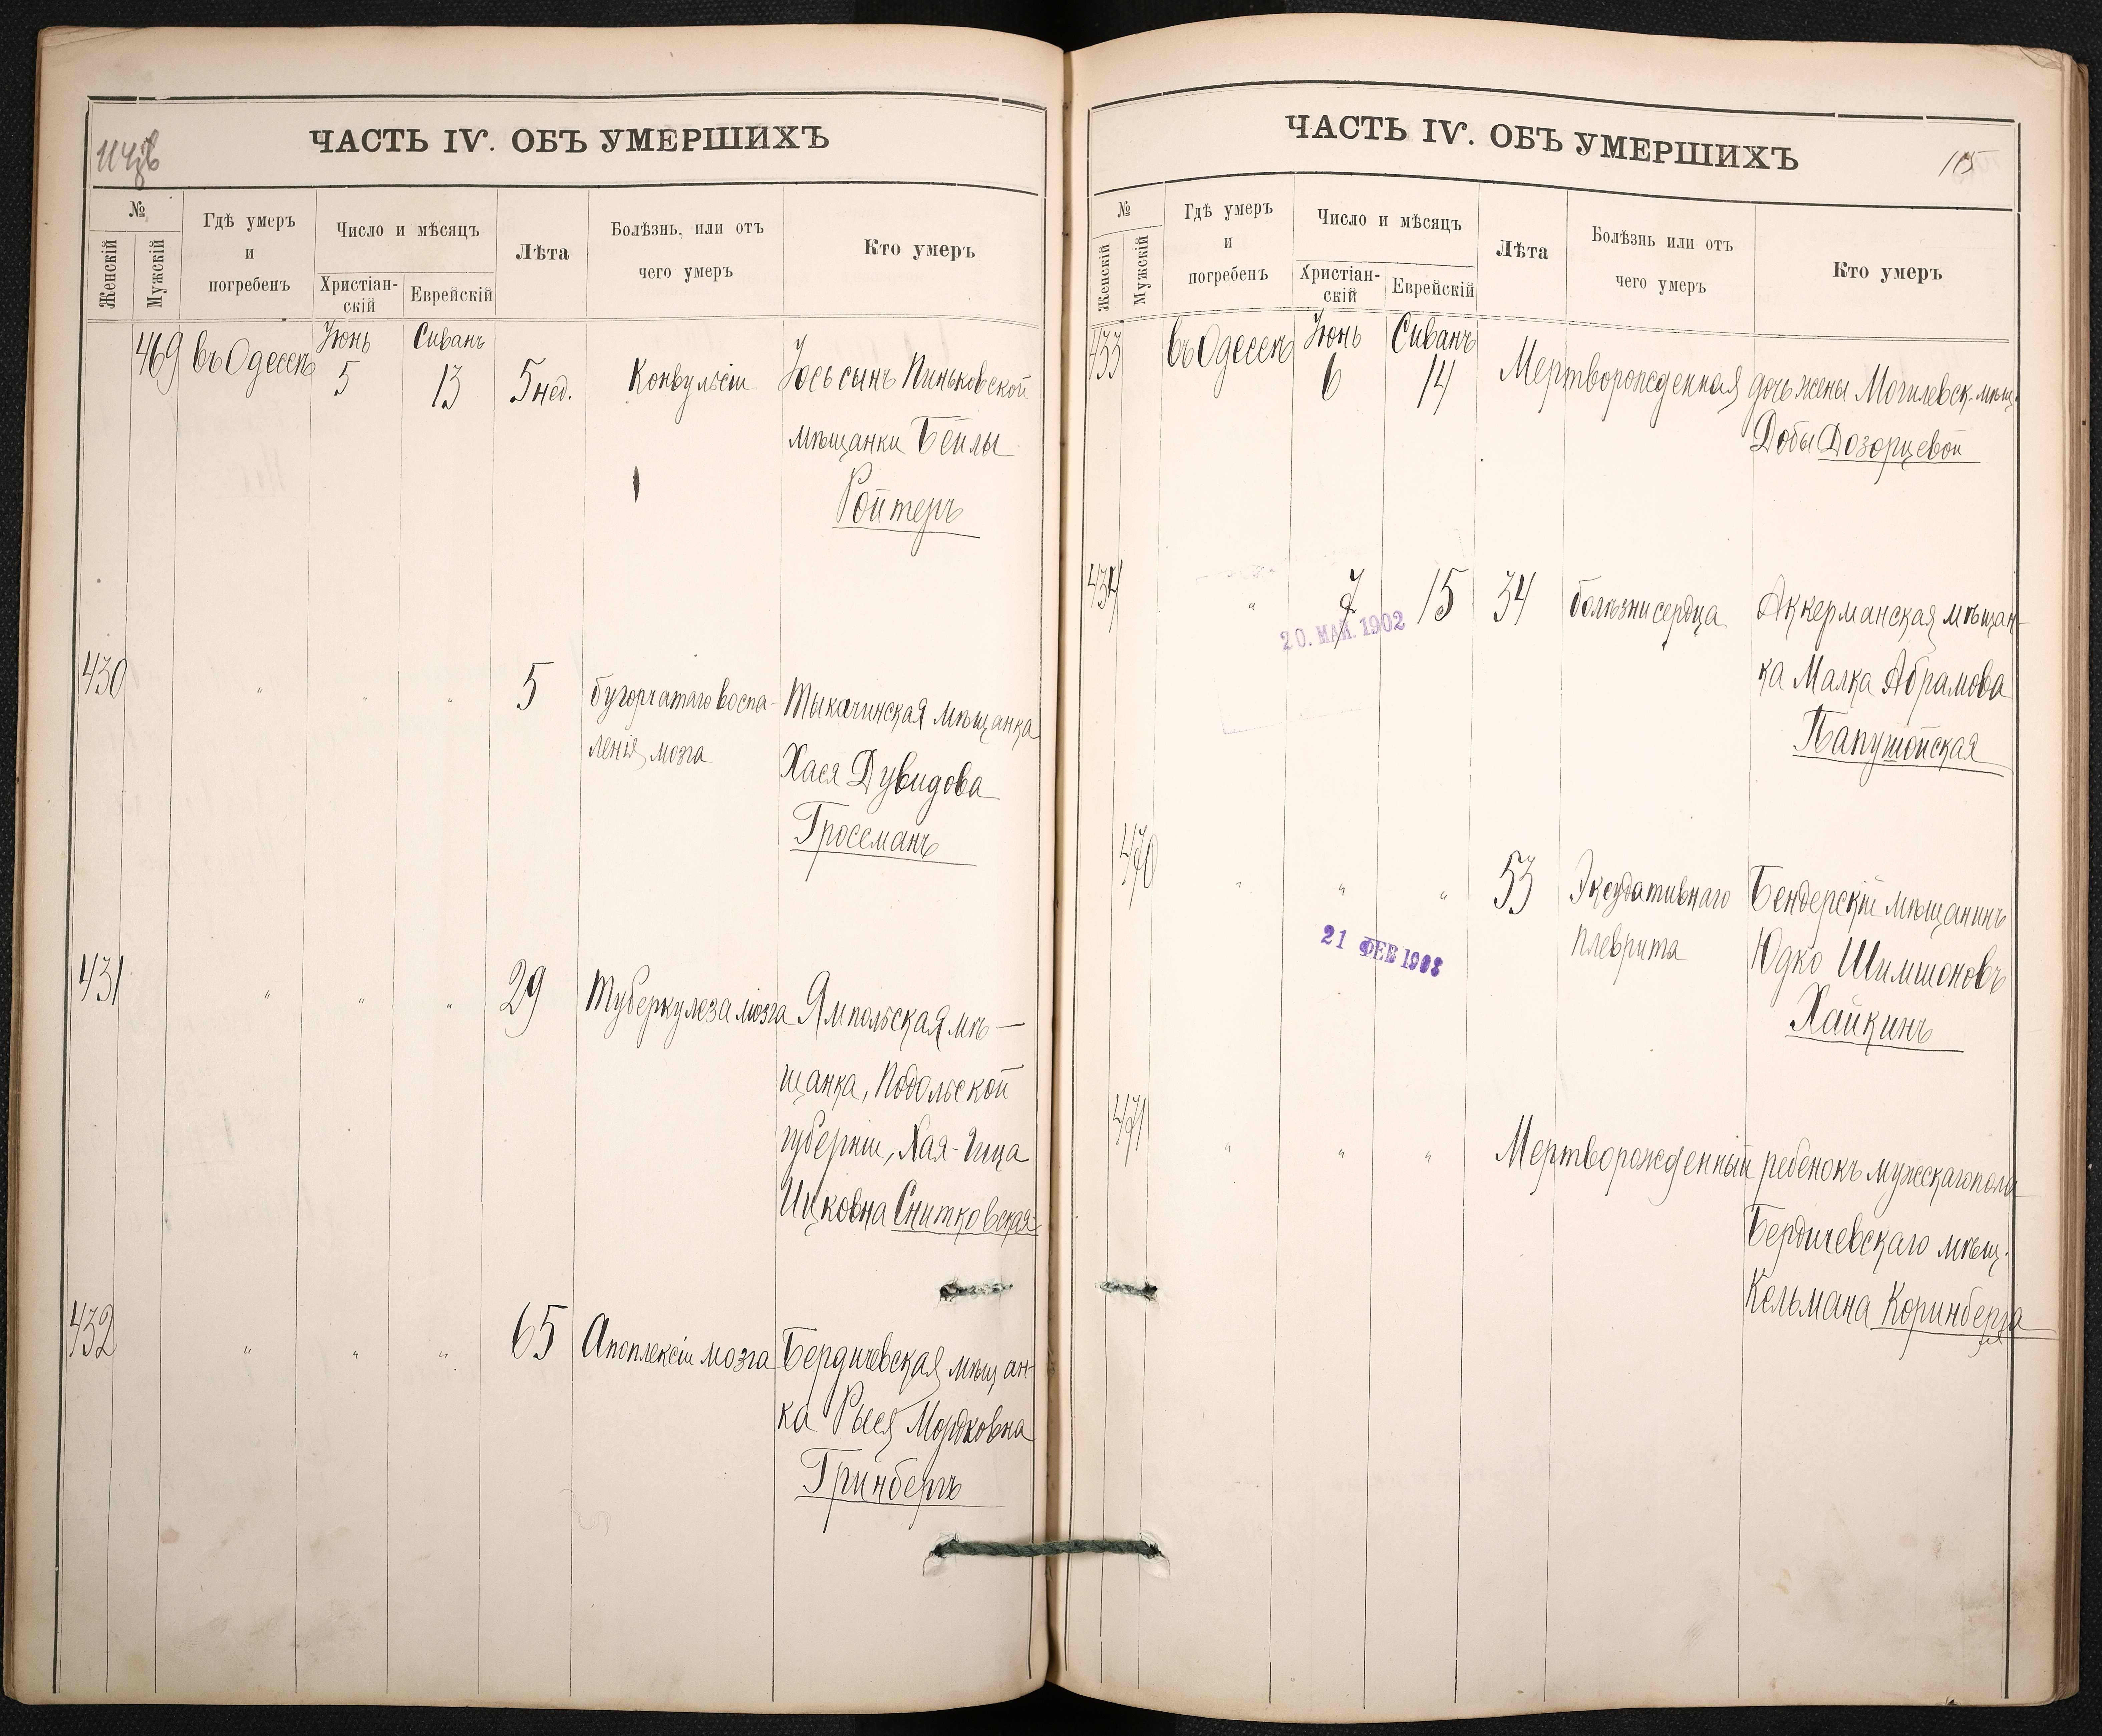 ЧАСТЬ IV. ОБЪ УМЕРШИХЪ
№
Женскій
Мужскій
Гдѣ умеръ
и
погребенъ
Число и мѣсяцъ
Христіан-
скій
Еврейскій
Лѣта
Болѣзнь, или отъ
чего умеръ
Кто умеръ
Іюнь Сиванъ
469 въ Одессѣ 5 13 5 нед. Конвульсіи Іось сынъ Пиньковской
мѣщанки Бейлы
Ройтеръ
430 " " " 5 бугорчатаго воспа- Тыкачинская мѣщанка
ленія мозга Хася Дувидова
Гроссманъ
431 " " " 29 Туберкулеза мозга Ямпольская мѣ-
щанка, Подольской
губерніи, Хая-Гица
Ицковна Снитковская
432 " " " 65 Апоплексіи мозга Бердичевская мѣщан-
ка Рыся Мордковна
Гринбергъ
ЧАСТЬ IV. ОБЪ УМЕРШИХЪ
115
№
Женскій
Мужскій
Гдѣ умеръ
и
погребенъ
Число и мѣсяцъ
Христіан-
скій
Еврейскій
Лѣта
Болѣзнь или отъ
чего умеръ
Кто умеръ
Іюнь Сиванъ
433 въ Одессѣ 6 14 Мертворожденная дочь жены Могилевск. мѣщ.
Добы Дозорцевой
434 " 7 15 34 болѣзни сердца Аккерманская мѣщан-
20. МАЙ. 1902
ка Малка Абрамова
Папушойская
470 " " " 53 Эксудативнаго Бендерскій мѣщанинъ
21 ФЕВ 1903
плеврита Юдко Шимшоновъ
Хайкинъ
471 " " " Мертворожденный ребенокъ мужскаго пола
Бердичевскаго мѣщ.
Кельмана Коринберга